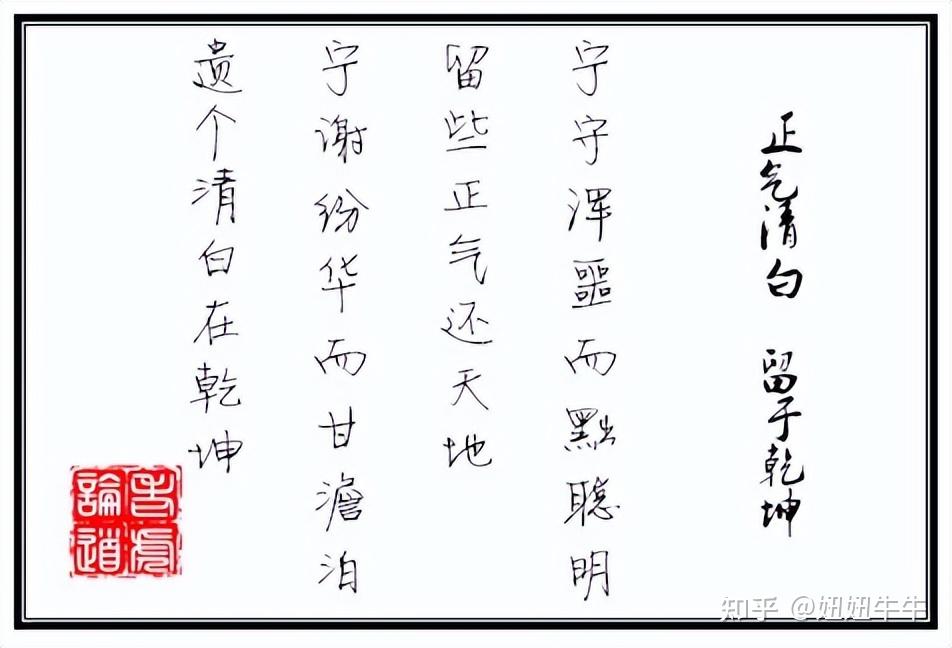 正气清白 留于乾坤
宁守浑噩而黜聰明
留些正气还天地
宁谢纷华而甘澹泊
遗个清白在乾坤
老虎
論道
知乎 @妞妞牛牛